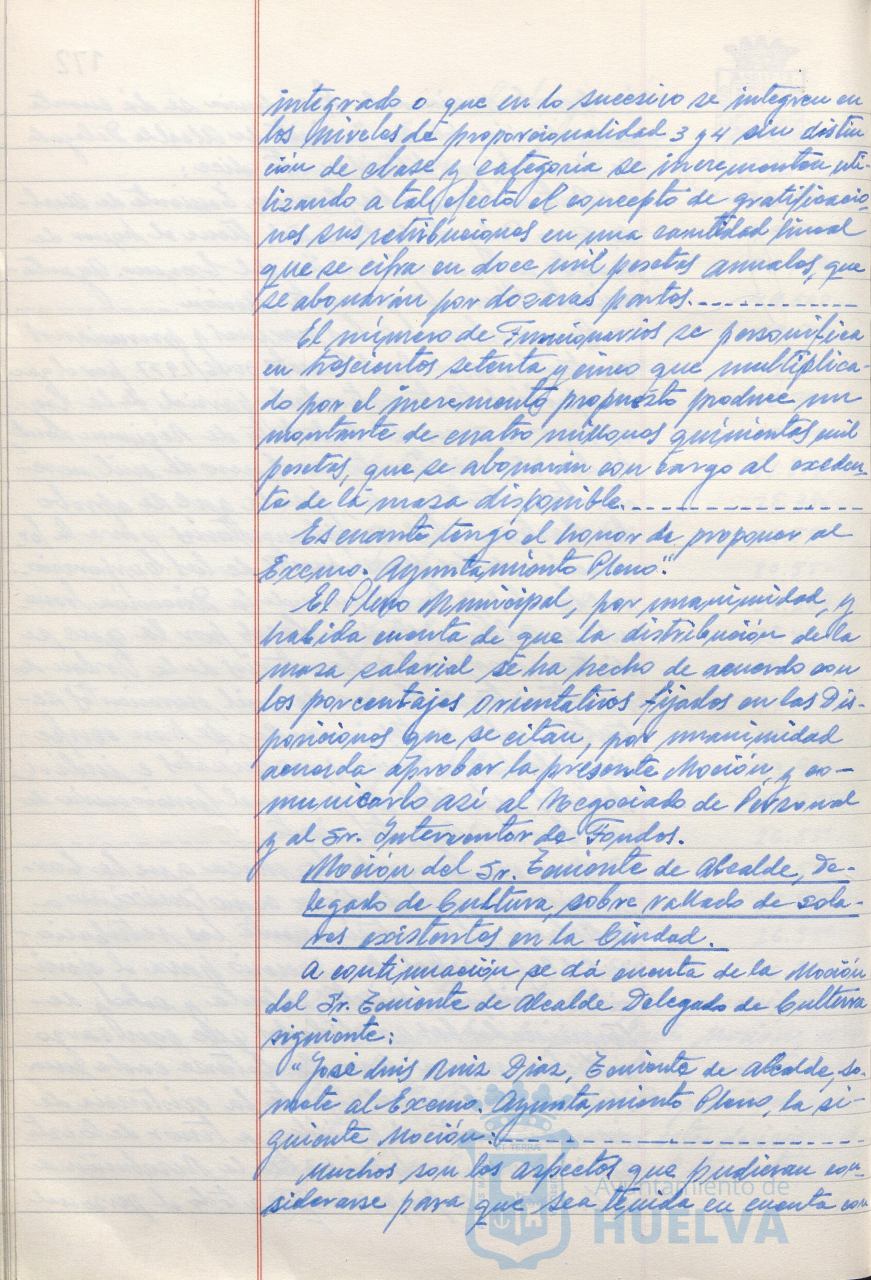 integrado o que en lo sucesivo se integren en
los Niveles de proporcionalidad 3 y 4 sin distin-
ción de clase y categoría se incrementen uti-
lizando a tal efecto el concepto de gratificacio-
nes sus retribuciones en una cantidad lineal
que se cifra en doce mil pesetas anuales, que
se abonarán por dozavas partes.
El número de Funcionarios se personifica
en trescientos setenta y cinco que multiplica-
do por el incremento propuesto produce un
montante de cuatro millones quinientas mil
pesetas, que se abonarán con cargo al exceden-
te de la masa disponible.
Es cuanto tengo el honor de proponer al
Excmo. Ayuntamiento Pleno."
El Pleno Municipal, por unanimidad, y
habida cuenta de que la distribución de la
masa salarial se ha hecho de acuerdo con
los porcentajes orientativos fijados en las Dis-
posiciones que se citan, por unanimidad
acuerda aprobar la presente Moción y co-
municarlo así al Negociado de Personal
y al Sr. Interventor de Fondos.
Moción del Sr. Teniente de Alcalde, De-
legado de Cultura, sobre vallado de sola-
res existentes en la Ciudad.
A continuación se dá cuenta de la Moción
del Sr. Teniente de Alcalde Delegado de Cultura
siguiente:
"José Luis Ruiz Díaz, Teniente de Alcalde, so-
mete al Excmo. Ayuntamiento Pleno, la si-
guiente Moción:
Muchos son los aspectos que pudieran con-
siderarse para que sea tenida en cuenta con
Ayuntamiento de
HUELVA